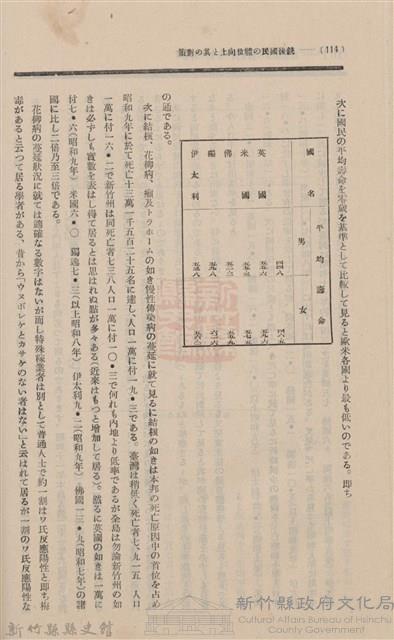 (114) ── 銃後國民の體位向上と其の對策
次に國民の平均壽命を零歲を基準として比較して見ると歐米各國より最も低いのである。卽ち
國名 平均壽命
男 女
英國
米國
佛國
獨
伊太利
の通である。
次に結核、花柳病、癩及トラホームの如き慢性傳染病の蔓延に就て見るに結核の如きは本邦の死亡原因中の首位を占め
昭和九年に於て死亡十三萬一千五百二十五名に達し、人口一萬に付一九・三である。臺灣は稍低く死亡者七、九一五 人口
一萬に付一六・二で新竹州は同死亡者七三八人口一萬に付一〇・三で何れも內地より低率であるが全島は勿論新竹州の如
きは必ずしも實數を表はし得て居るとは思はれぬ點が多々ある(近來はもつと增加して居る)。然るに英國の如きは一萬に
付七・六(昭和九年) 米國六・〇 獨逸七・三(以上昭和八年) 伊太利九・二(昭和九年) 佛國一三・九(昭和七年)の諸
國に比し二倍乃至三倍である。
花柳病の蔓延狀況に就ては適確なる數字はないが而し特殊稼業者は別として普通人士で約一割はワ氏反應陽性と卽ち梅
毒があると云つて居る學者がある、昔から「ウヌボレケとカサケのない者はない」と云はれて居るが一割のワ氏反應陽性な
新竹縣政府文化局
Cultural Affairs Bureau of Hsinchu County Government
新竹縣縣史館